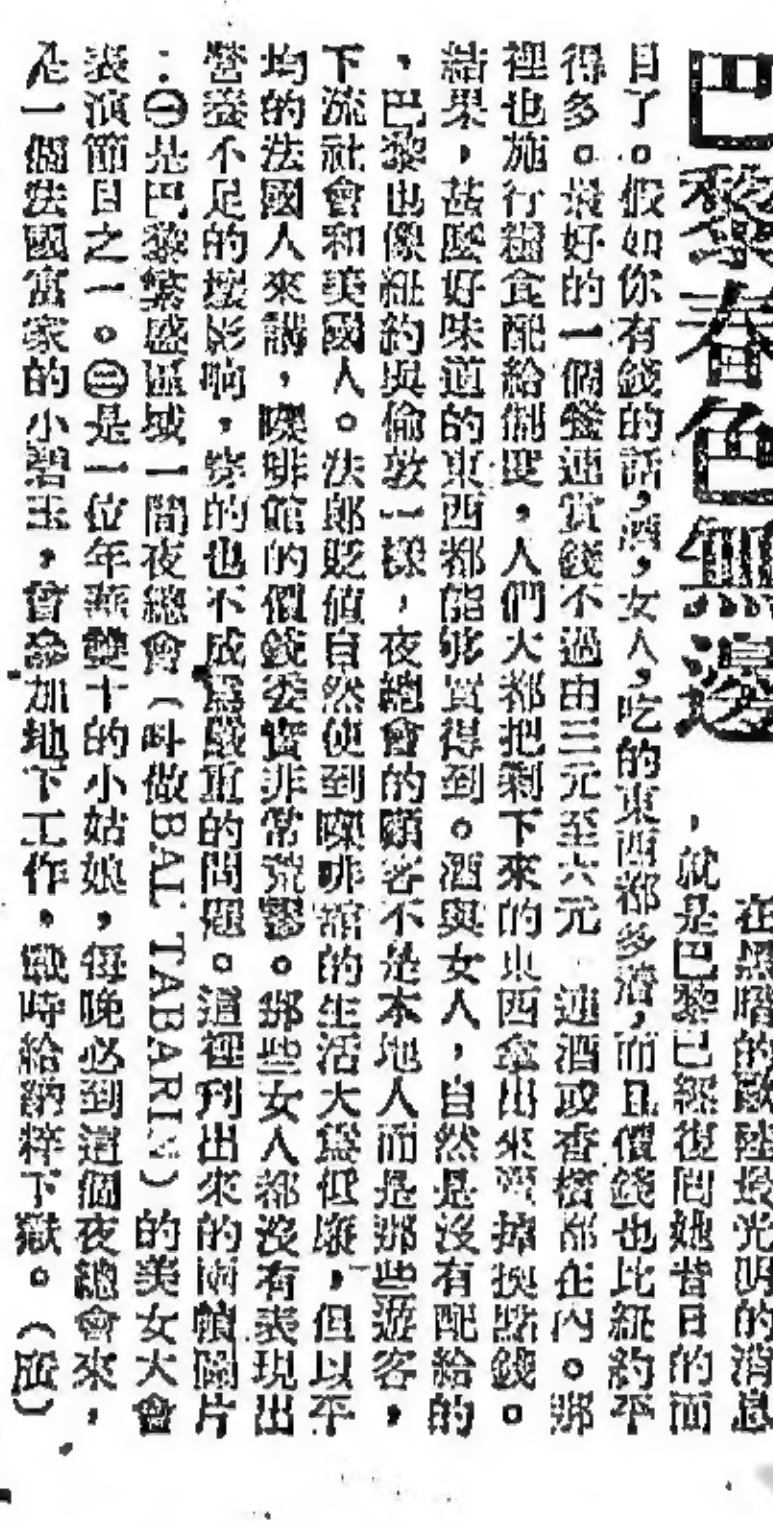 巴黎春色無邊
在黑暗的歐陸最光明的消息
，就是巴黎已經復回她昔日的面
目了。假如你有錢的話，酒，女人，吃的東西都多濟，而且價錢也比紐約平
得多。最好的一個餐連賞錢不過由三元至六元 連酒或香檳都在內。那
裡也施行糧食配給制度，人們大都把剩下來的東西拿出來 換點錢。
結果，甚麼好味道的東西都能够買得到。酒與女人，自然是沒有配給的
，巴黎也像紐約與倫敦一樣，夜總會的顧客不是本地人而是那些遊客，
下流社會和美國人。法郎貶值自然使到㗎啡館的生活大為低廉，但以平
均的法國人來講，㗎啡館的價錢委實非常荒謬。那些女人都沒有表現出
營養不足的壞影响，穿的也不成為嚴重的問題。這裡刊出來的兩幀圖片
：㊀是巴黎繁盛區域一間夜總會（叫做BAL TABARIN）的美女大會
表演節目之一。㊁是一位年華雙十的小姑娘，每晚必到這個夜總會來，
是一個法國富家的小碧玉，曾參加地下工作，戰時給納粹下獄。（ ）